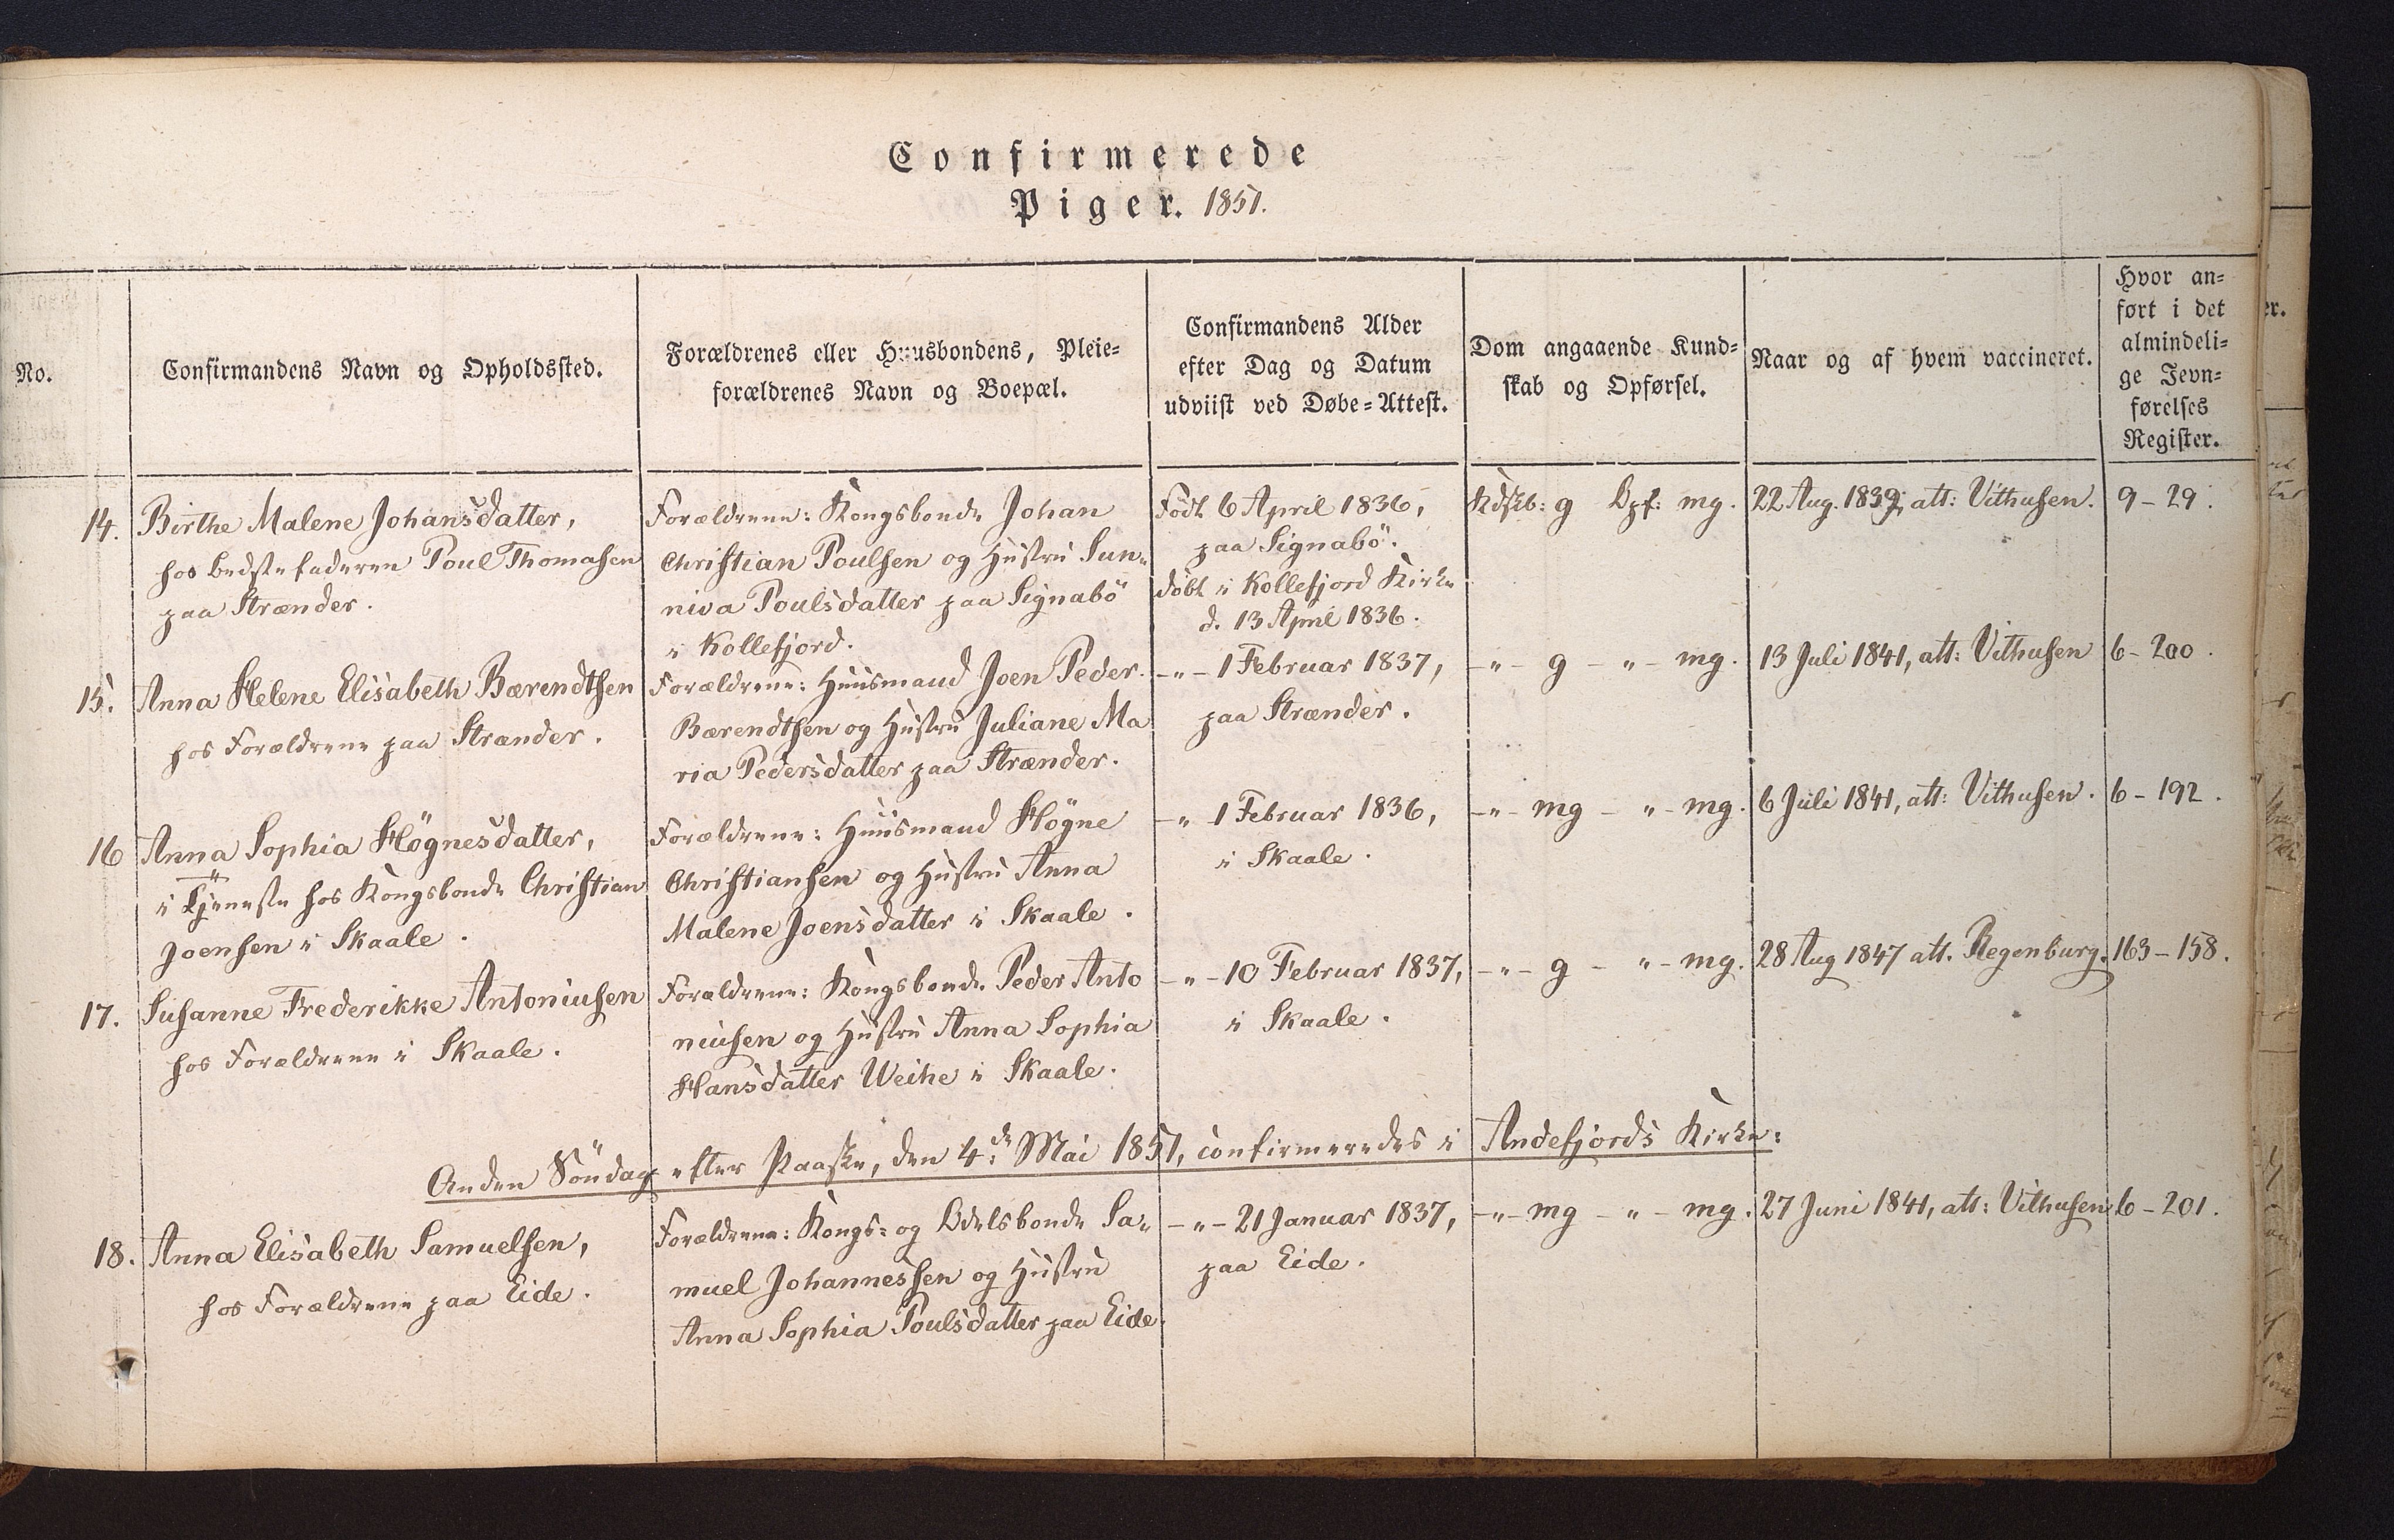 Confirmerede
Piger. 1851.
No.
Confirmandens Navn og Opholdssted.
Forældrenes eller Huusbondens, Pleie-
forældrenes Navn og Boepæl.
Confirmandens Alder
efter Dag og Datum
udviist ved Døbe-Attest.
Dom angaaende Kund-
skab og Opførsel.
Naar og af hvem vaccineret.
Hvor an-
ført i det
almindeli-
ge Jevn-
førelses
Register.
14.
Birthe Malene Johansdatter,
hos Bedstefaderen Poul Thomasen
paa Strænder.
Forældrene: Kongsbonde Johan
Christian Poulsen og Hustru Sun-
niva Poulsdatter paa Signabö
i Kollefjord.
Födt 6 April 1836,
paa Signabö.
döbt i Kollefjord Kirke
d. 13 April 1836.
Kdskb: g Opf: mg.
22 Aug. 1839, att: Vithusen.
9 - 29.
15.
Anna Helene Elisabeth Bærendtsen
hos Forældrene paa Strænder.
Forældrene: Huusmand Joen Peder
Bærendtsen og Hustru Juliane Ma
ria Pedersdatter paa Strænder.
-"- 1 Februar 1837,
paa Strænder.
-"- g -"- mg.
13 Juli 1841, att: Vithusen
6 - 200.
16
Anna Sophia Högnesdatter,
i Tjeneste hos Kongsbonde Christian
Joensen i Skaale.
Forældrene: Huusmand Högne
Christiansen og Hustru Anna
Malene Joensdatter i Skaale.
-" 1 Februar 1836,
i Skaale.
-"- mg -"- mg.
6 Juli 1841, att: Vithusen.
6 - 192.
17.
Susanne Frederikke Antoniusen
hos Forældrene i Skaale.
Forældrene: Kongsbonde Peder Anto
niusen og Hustru Anna Sophia
Hansdatter Weihe i Skaale.
-"- 10 Februar 1837,
i Skaale.
-"- g -"- mg.
28 Aug 1847 att. Regenburg.
163 - 158.
Anden Söndag efter Paaske, den 4de Mai 1851, confirmeredes i Andefjords Kirke:
18.
Anna Elisabeth Samuelsen,
hos Forældrene paa Eide.
Forældrene: Kongs- og Odelsbonde Sa-
muel Johannessen og Hustru
Anna Sophia Poulsdatter paa Eide.
-"- 21 Januar 1837,
paa Eide.
-"- mg -"- mg.
27 Juni 1841, att: Vithusen
6 - 201.